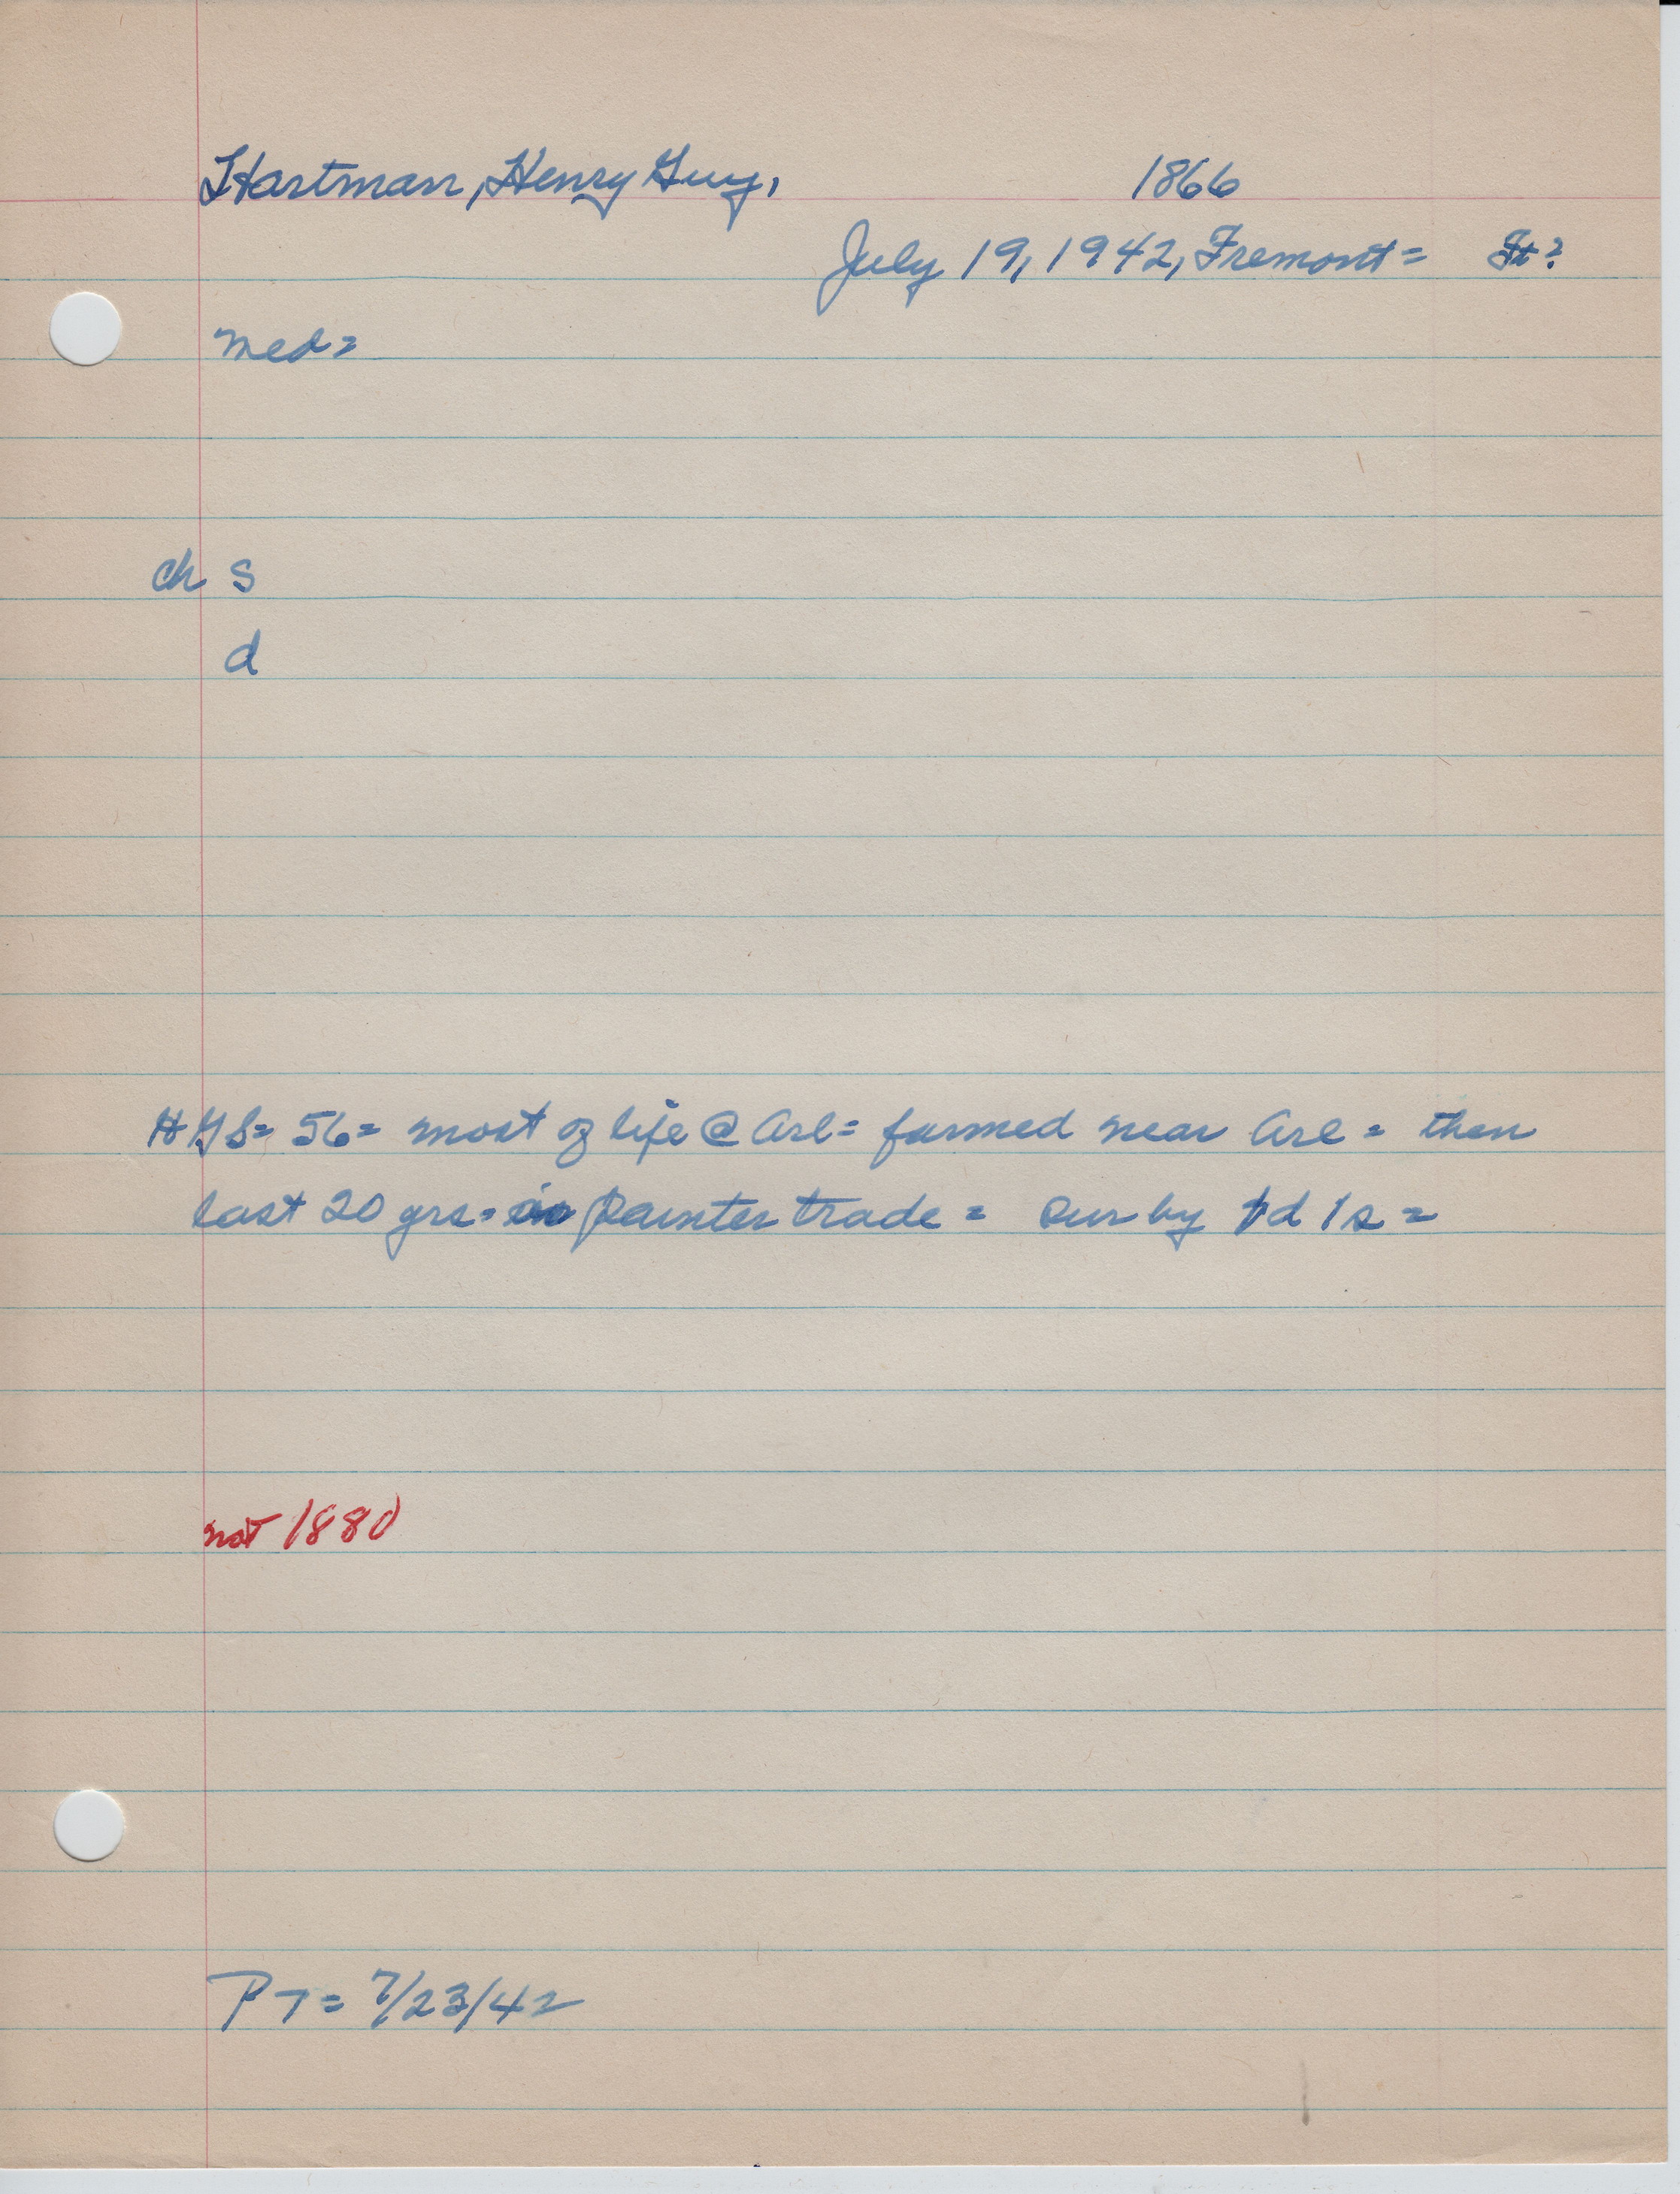 Hartman, Henry Guy, 1866
July 19, 1942, Fremont = Ft?
med =
ch s
d
HGS= 56= most of life @ Arl= farmed near Arl = then
last 20 yrs= painter trade = sur by 1d 1s =
not 1880
PT= 7/23/42